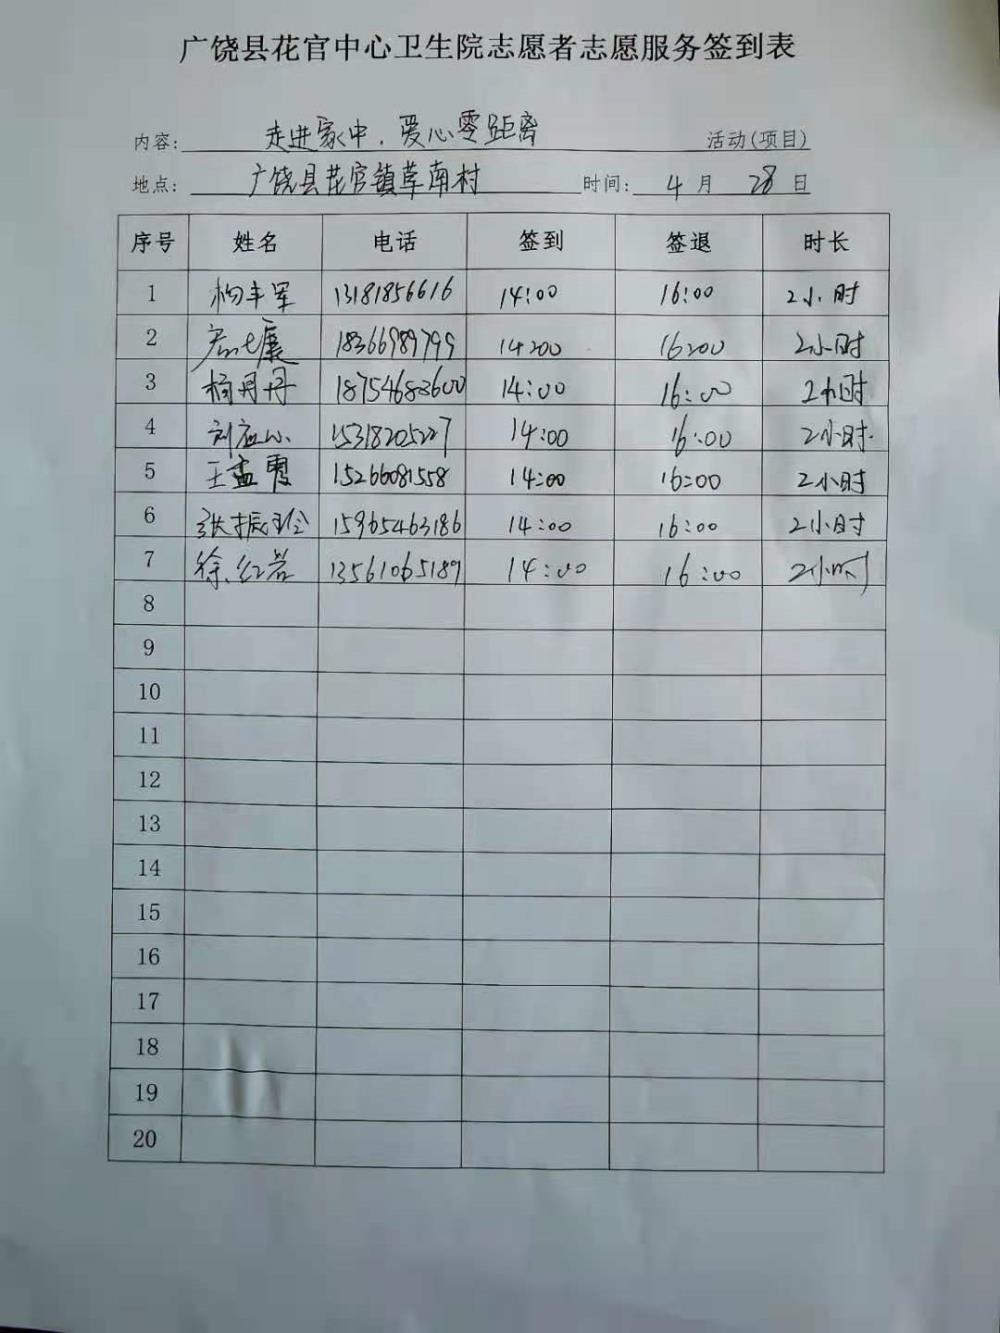 广饶县花官中心卫生院志愿者志愿服务签到表
内容: 走进家中，爱心零距离 活动(项目)
地点: 广饶县花官镇草南村 时间: 4 月 28 日
序号 姓名 电话 签到 签退 时长
1 杨丰军 13181856616 14:00 16:00 2小时
2 18366989799 14:00 16:00 2小时
3 杨丹丹 18754683600 14:00 16:00 2小时
4 15318205227 14:00 16:00 2小时
5 王孟霞 15266081558 14:00 16:00 2小时
6 张振玲 15965463186 14:00 16:00 2小时
7 徐红岩 13561065189 14:00 16:00 2小时
8
9
10
11
12
13
14
15
16
17
18
19
20